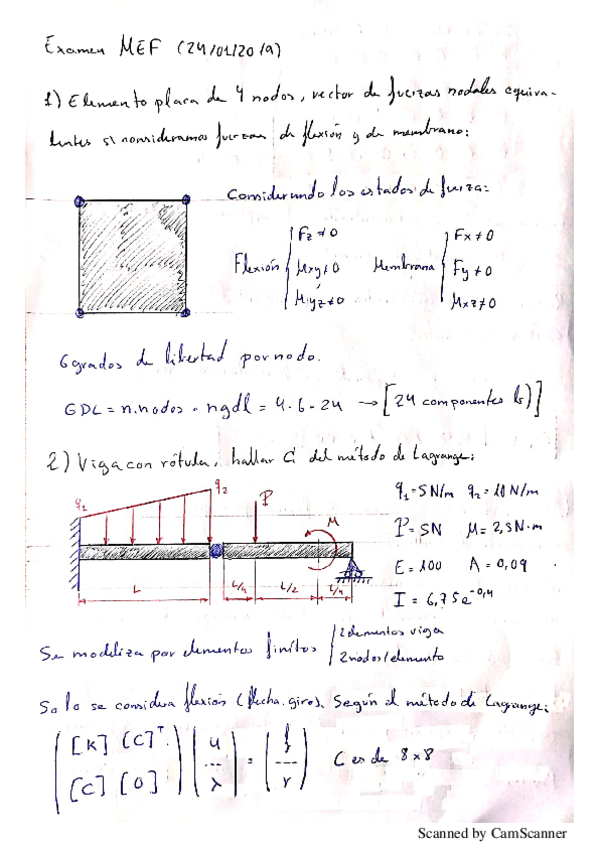 Examen MEF (24/01/2019)
1) Elemento placa de 4 nodos, vector de fuerzas nodales equiva-
lentes si consideramos fuerzas de flexión y de membrana:
Considerando los estados de fuerza:
Flexión { Fz≠0 Membrana { Fx≠0
Mxy≠0 Fy≠0
Myz≠0 Mxz≠0
6 grados de libertad por nodo.
GDL = n.nodos · ngdl = 4·6 = 24 → [24 componentes]
2) Viga con rótula, hallar C del método de Lagrange:
q1 q2 P M
q1=5N/m q2=10N/m
P=5N M=2,5N·m
E=100 A=0,09
I=6,75e-04
L L/4 L/2 L/4
Se modeliza por elementos finitos { 2 elementos viga
2 nodos/elemento
Solo se considera flexión (flecha, giro). Según el método de Lagrange:
([K] [C]ᵀ) (u) = (f)
([C] [0]) (λ) (r)
C es de 8x8
Scanned by CamScanner